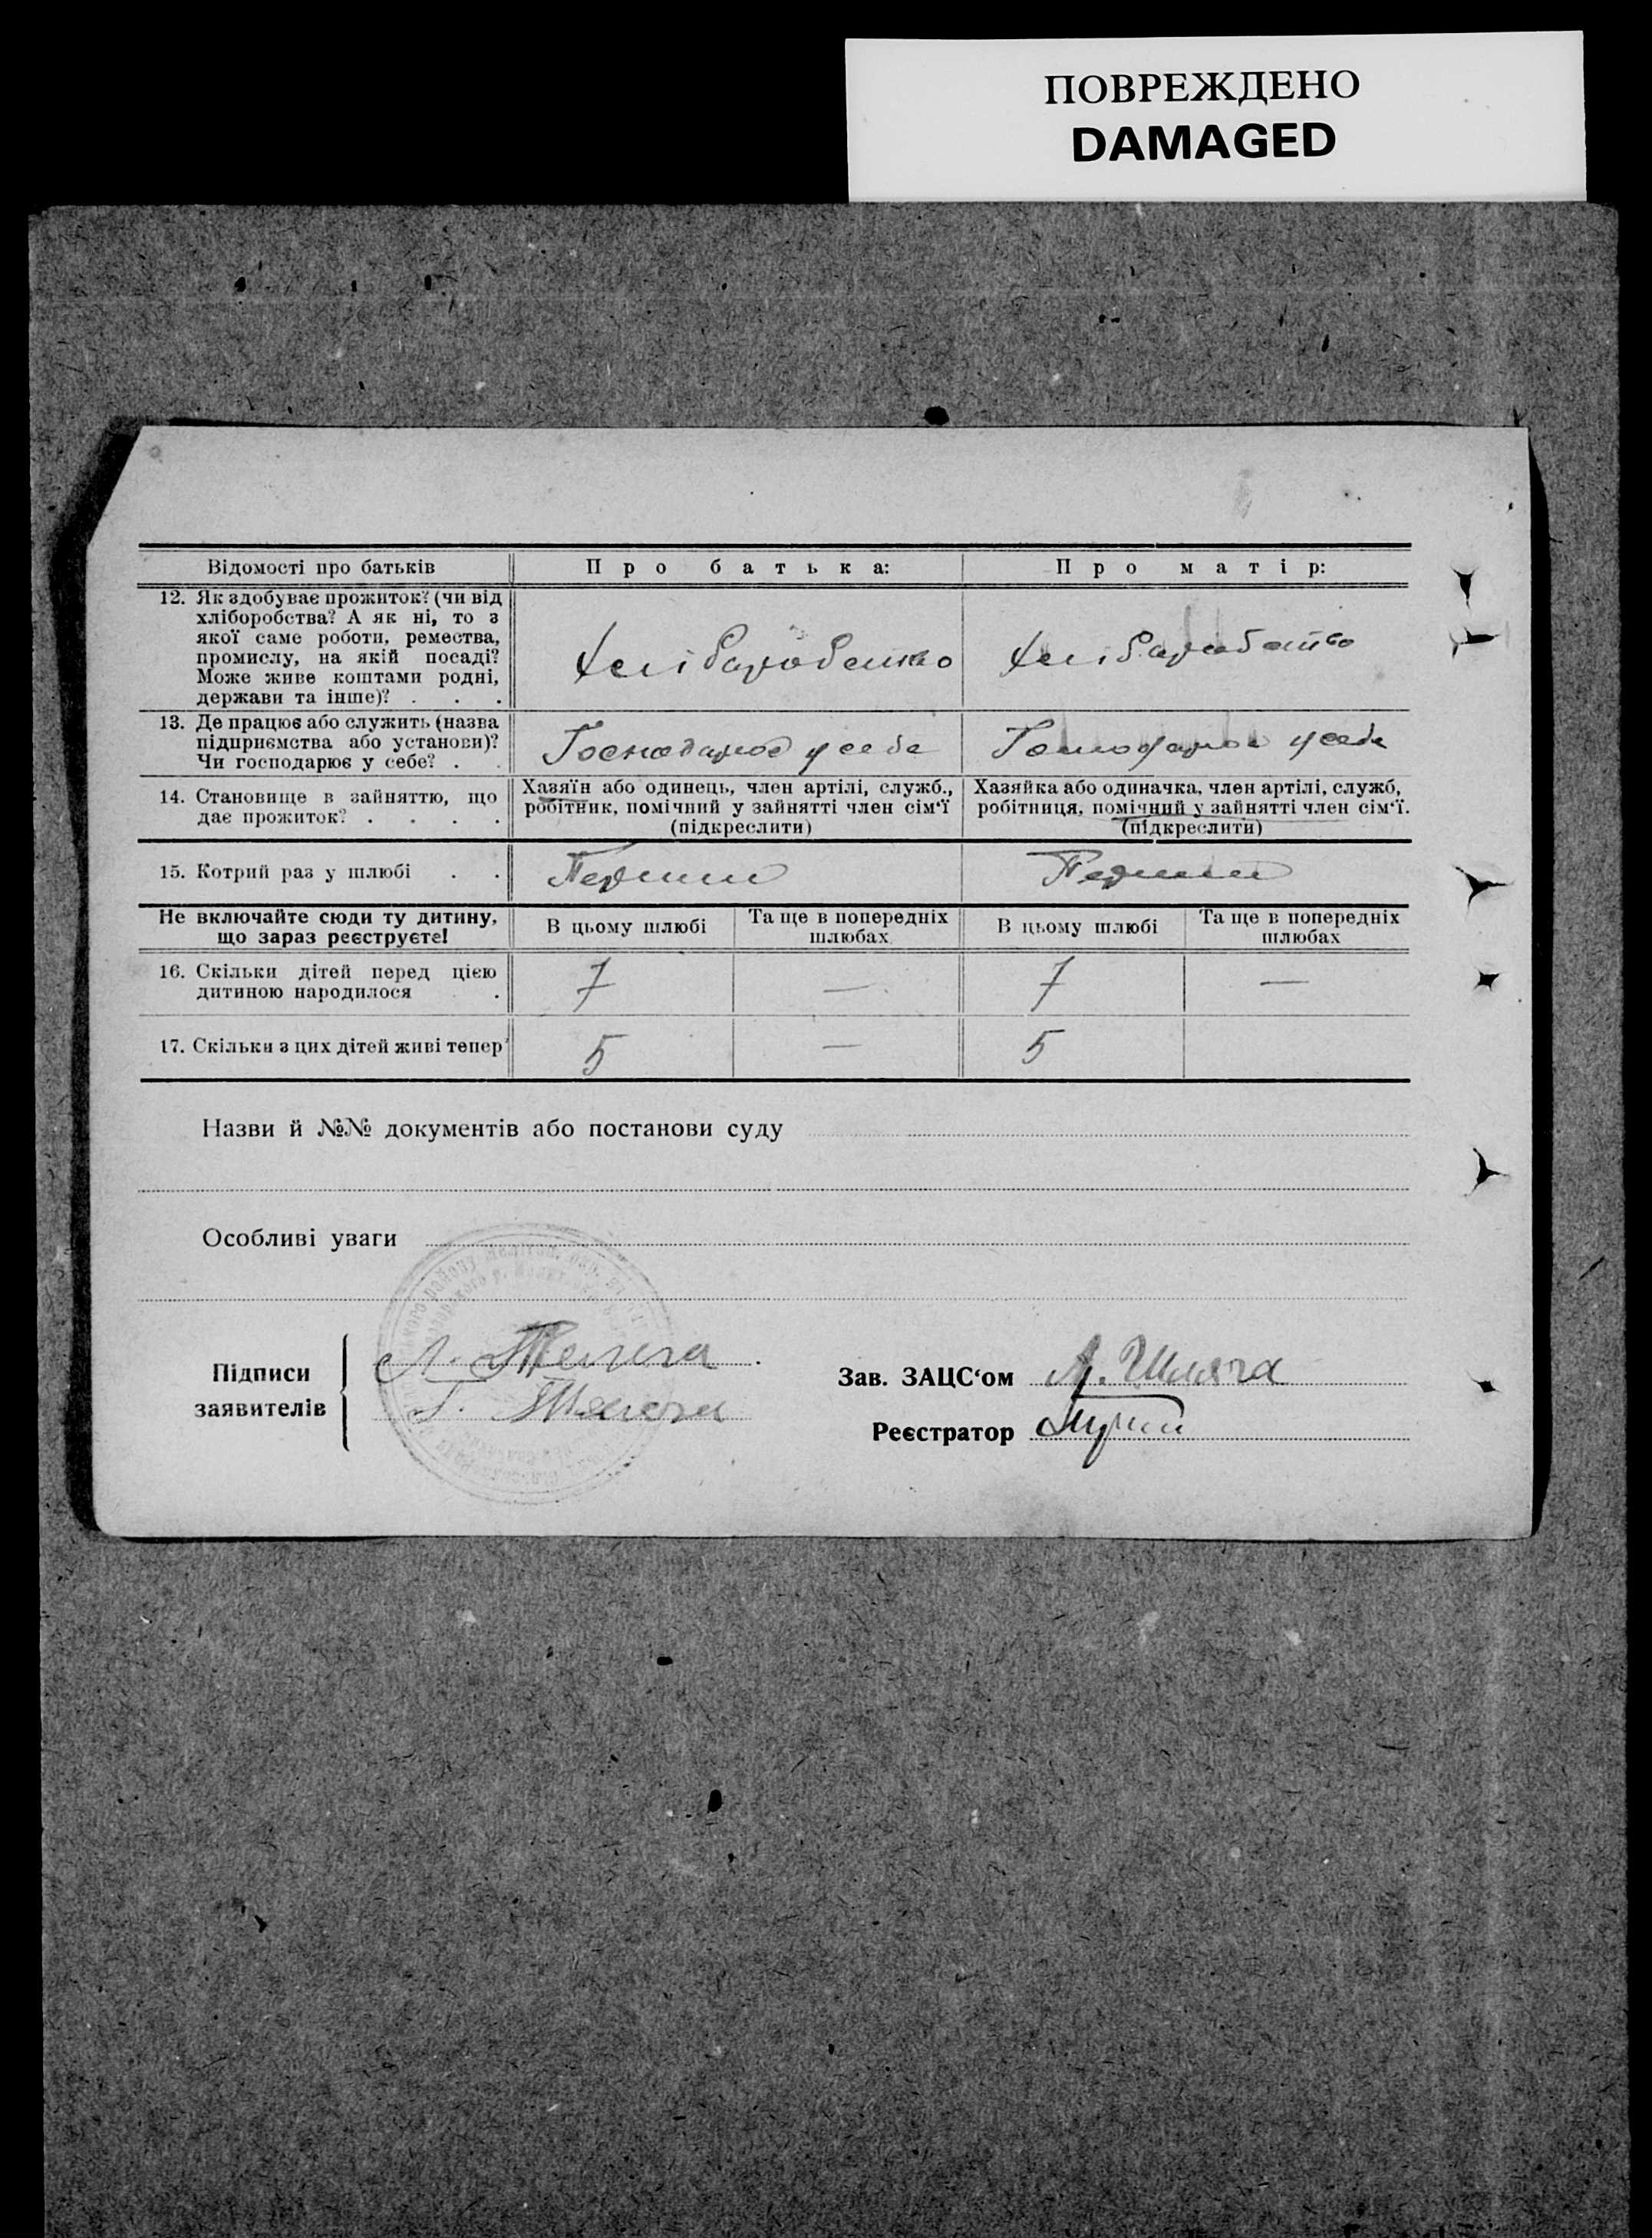 ПОВРЕЖДЕНО
DAMAGED
Відомості про батьків
Про батька:
Про матір:
12. Як здобуває прожиток? (чи від
хліборобства? А як ні, то з
якої саме роботи, ремества,
промислу, на якій посаді?
Може живе коштами родні,
держави та інше)? . . .
Хліборобство
Хліборобство
13. Де працює або служить (назва
підприємства або установи)?
Чи господарює у себе? . .
Господарює у себе
Господарює у себе
14. Становище в зайняттю, що
дає прожиток? . . . .
Хазяїн або одинець, член артілі, служб.,
робітник, помічний у зайнятті член сім'ї
(підкреслити)
Хазяйка або одиначка, член артілі, служб,
робітниця, помічний у зайнятті член сім'ї.
(підкреслити)
15. Котрий раз у шлюбі . .
Перший
Перший
Не включайте сюди ту дитину,
що зараз реєструєте!
В цьому шлюбі
Та ще в попередніх
шлюбах
В цьому шлюбі
Та ще в попередніх
шлюбах
16. Скільки дітей перед цією
дитиною народилося .
7
—
7
—
17. Скільки з цих дітей живі тепер?
5
—
5
Назви й №№ документів або постанови суду
Особливі уваги
Підписи
заявителів
Зав. ЗАЦС'ом
Реєстратор